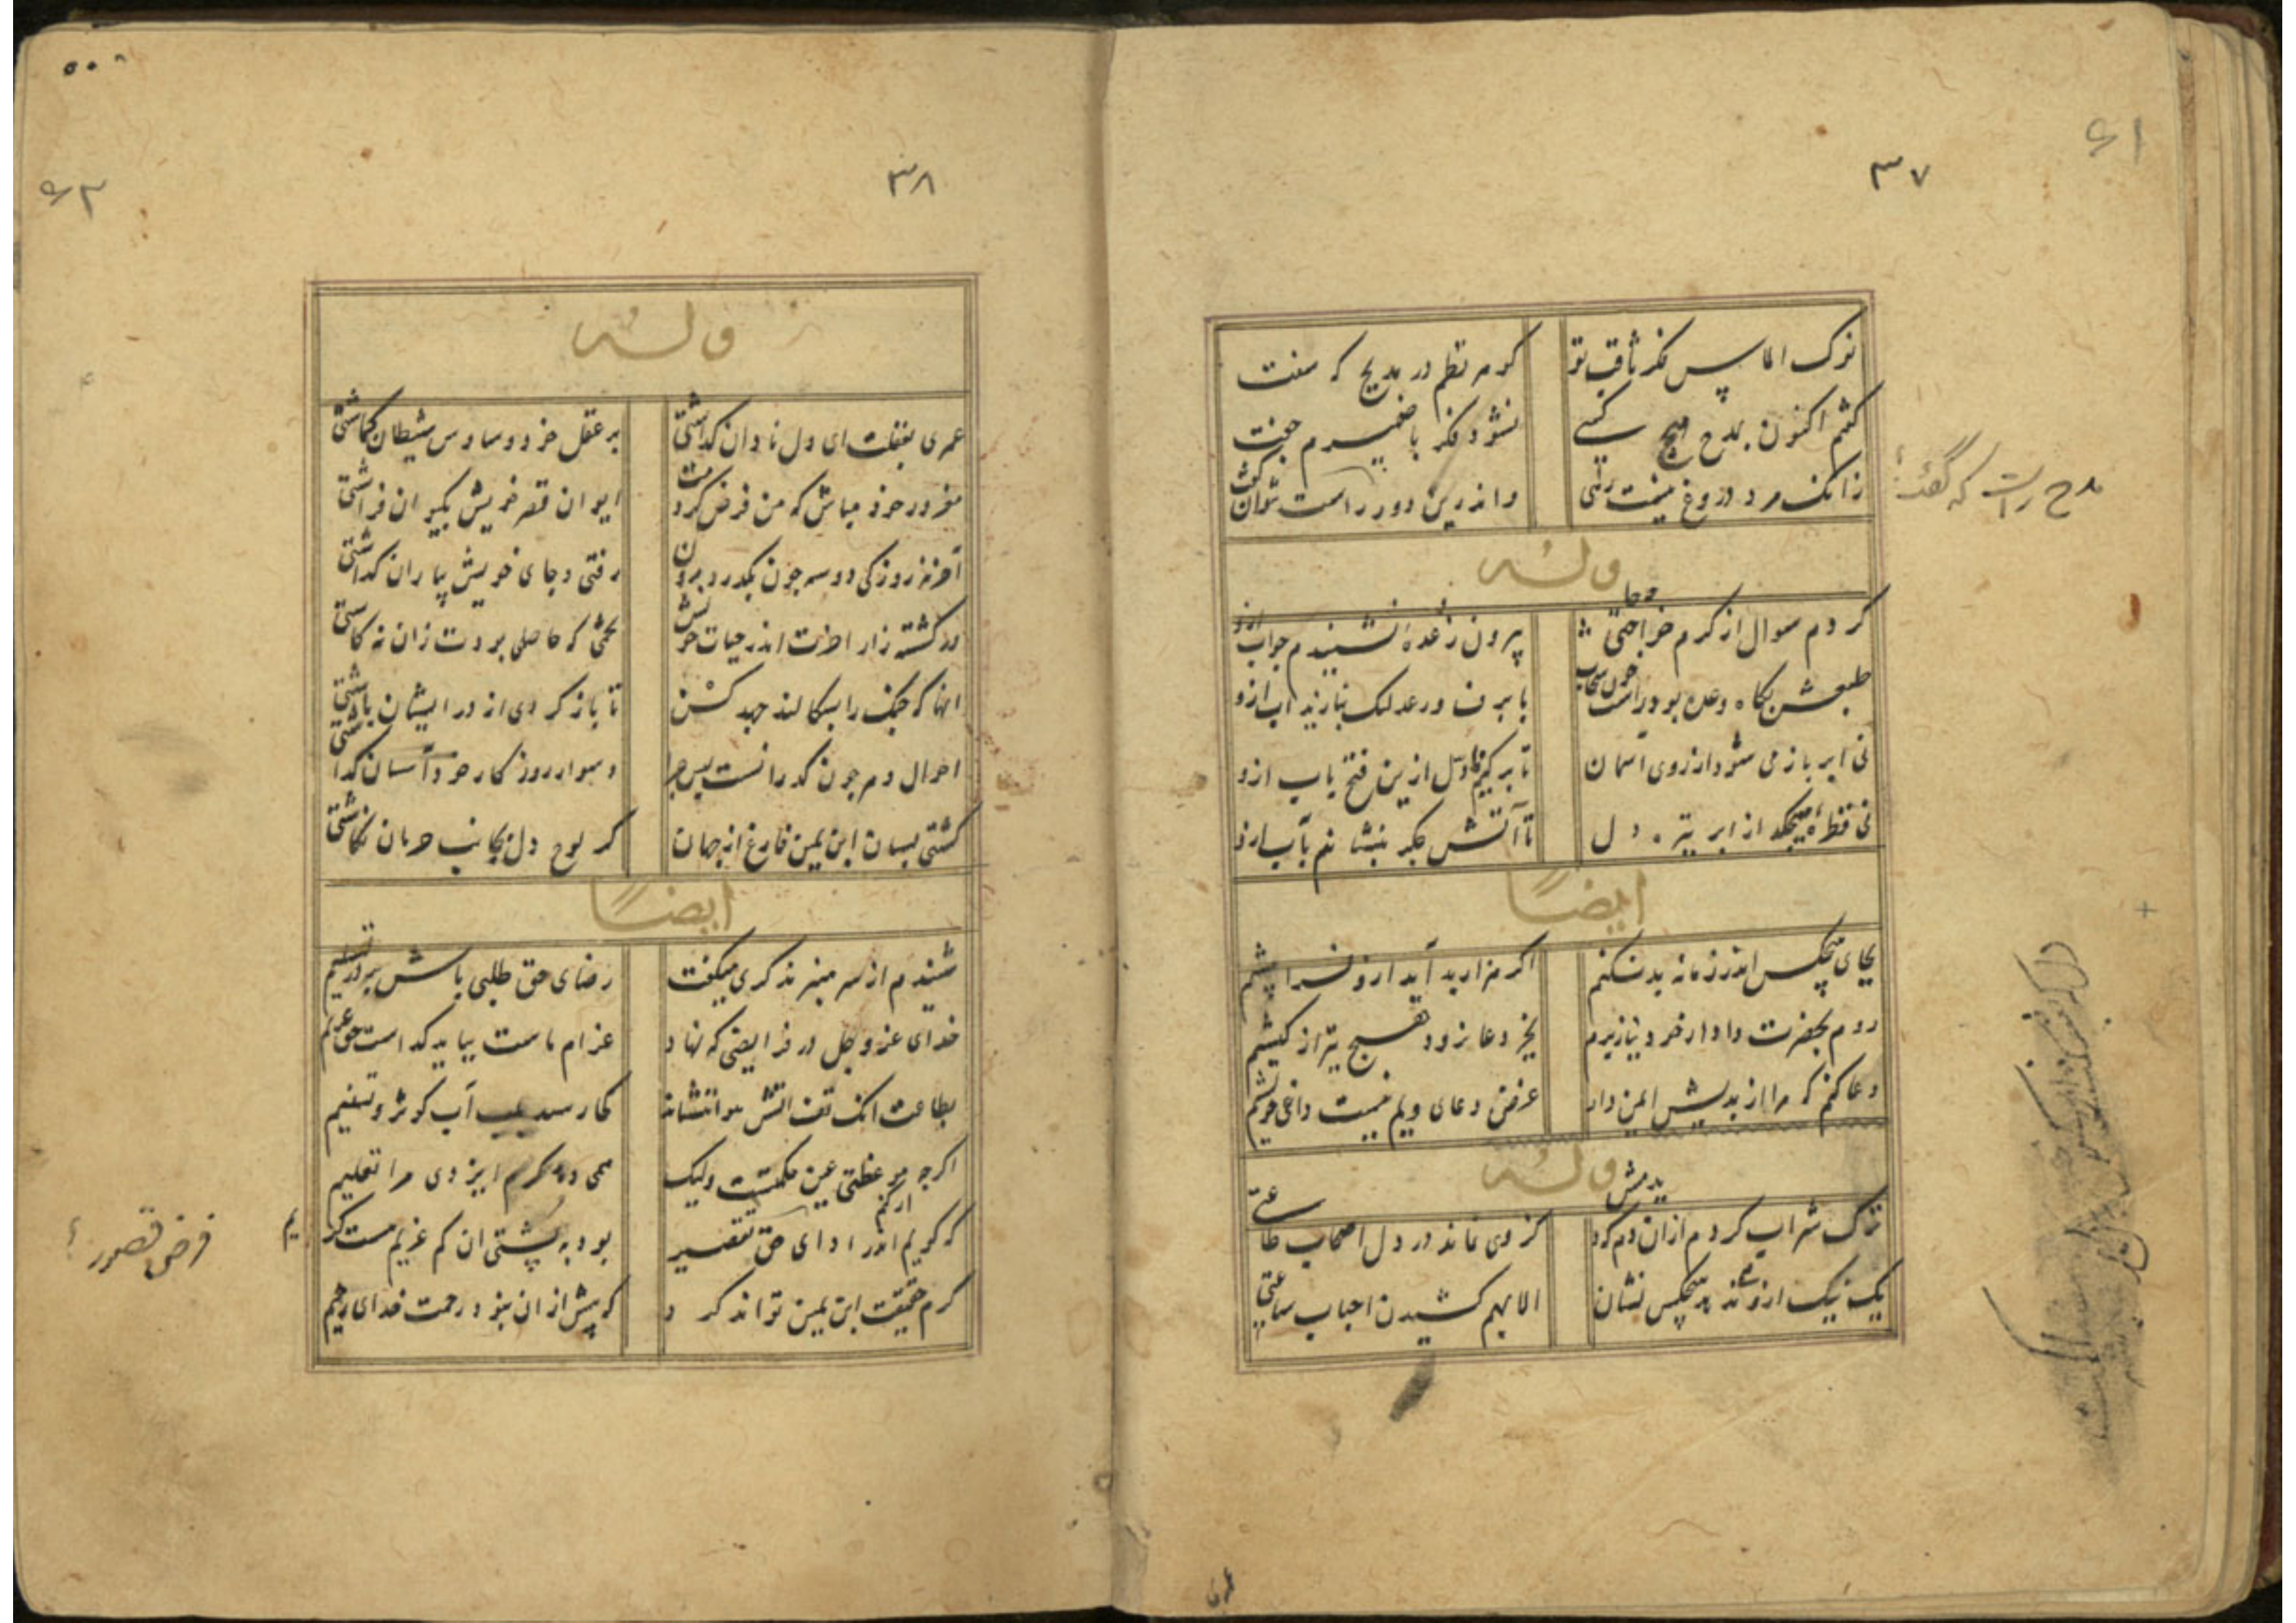 ۶۱
۳۷
نوک الماس فکر ثاقب تو گوهر نظم در مدیح که سفت
گفتم اکنون بمدح هیچ کسی نشود فکر با ضمیرم جفت
زانک مرد دروغ نیست رهی واندرین دور راست نتوان گفت
مدح راست که گفته؟
وله
کردم سوال از کرم خواجه حاجتی بیرون ز وعده نشنیدم جواب ازو
طبعش بگاه وعده بود راست چون سحاب با برق و رعد لیک نباریذ آب ازو
نی ابر باز می شود از روی آسمان تا برکنم دل از پی فتح باب ازو
نی قطره میچکد از ابر تیره دل تا آتش جگر بنشانم بآب ازو
ایضاً
بجای هیچکس اندر زمانه بد نکنم اگر هزار بد آید ازو فرا پیشم
روم بحضرت دادار خود نیاز برم بجز دعا نرود هیچ تیر از کیشم
دعا کنم که مرا از بدیش ایمن دار غرض دعای ویم نیست داعی خویشم
وله
ترک شراب کردم از آن دم که بدمش کز وی نماند در دل اصحاب طاعتی
یک نیک ازو نداد هیچکس نشان الا بهم کشیدن احباب ساعتی
عمری
۶۲
۳۸
وله
عمری بغفلت ای دل نادان گذاشتی بر عقل خود وساوس شیطان گماشتی
مغرور خود مباش که من فرض کردمت ایوان قصر خویش بکیوان فراشتی
آخر نه روزکی دو سه چون بگذرد برون رفتی و جای خویش بیاران گذاشتی
در کشته زار آخرت اندر حیات خویش تخمی که حاصلی بردت زان نه کاشتی
آنها که جنگ را بسکالند جهد کن تا باز گردی از در ایشان باشتی
احوال دهر چون گذرانست پس چرا دشوار روزگار خود آسان گذاشتی
گشتی بسان ابن یمین فارغ از جهان گر لوح دل بجانب حرمان نگاشتی
ایضاً
شنیدم از سر منبر مذکری میگفت رضای حق طلبی باش بر در تسلیم
خدای عز و جل در فرایضی که نهاد غرام ماست بباید گذاشت حق غریم
بطاعت آنک تف آتش هوا ننشاند کجا رسد بلب آب کوثر و تسنیم
اگرچه موعظتی عین حکمتست ولیک همی دهد کرم ایزدی مرا تعلیم
که گویم اندر ادای حق تقصیر ار کنم بود به پشتی آن کم غریم هست کریم
فرض قصور؟
کرم حقیقت ابن یمین تواند کرد که بیش از آن بنود رحمت خدای رحیم